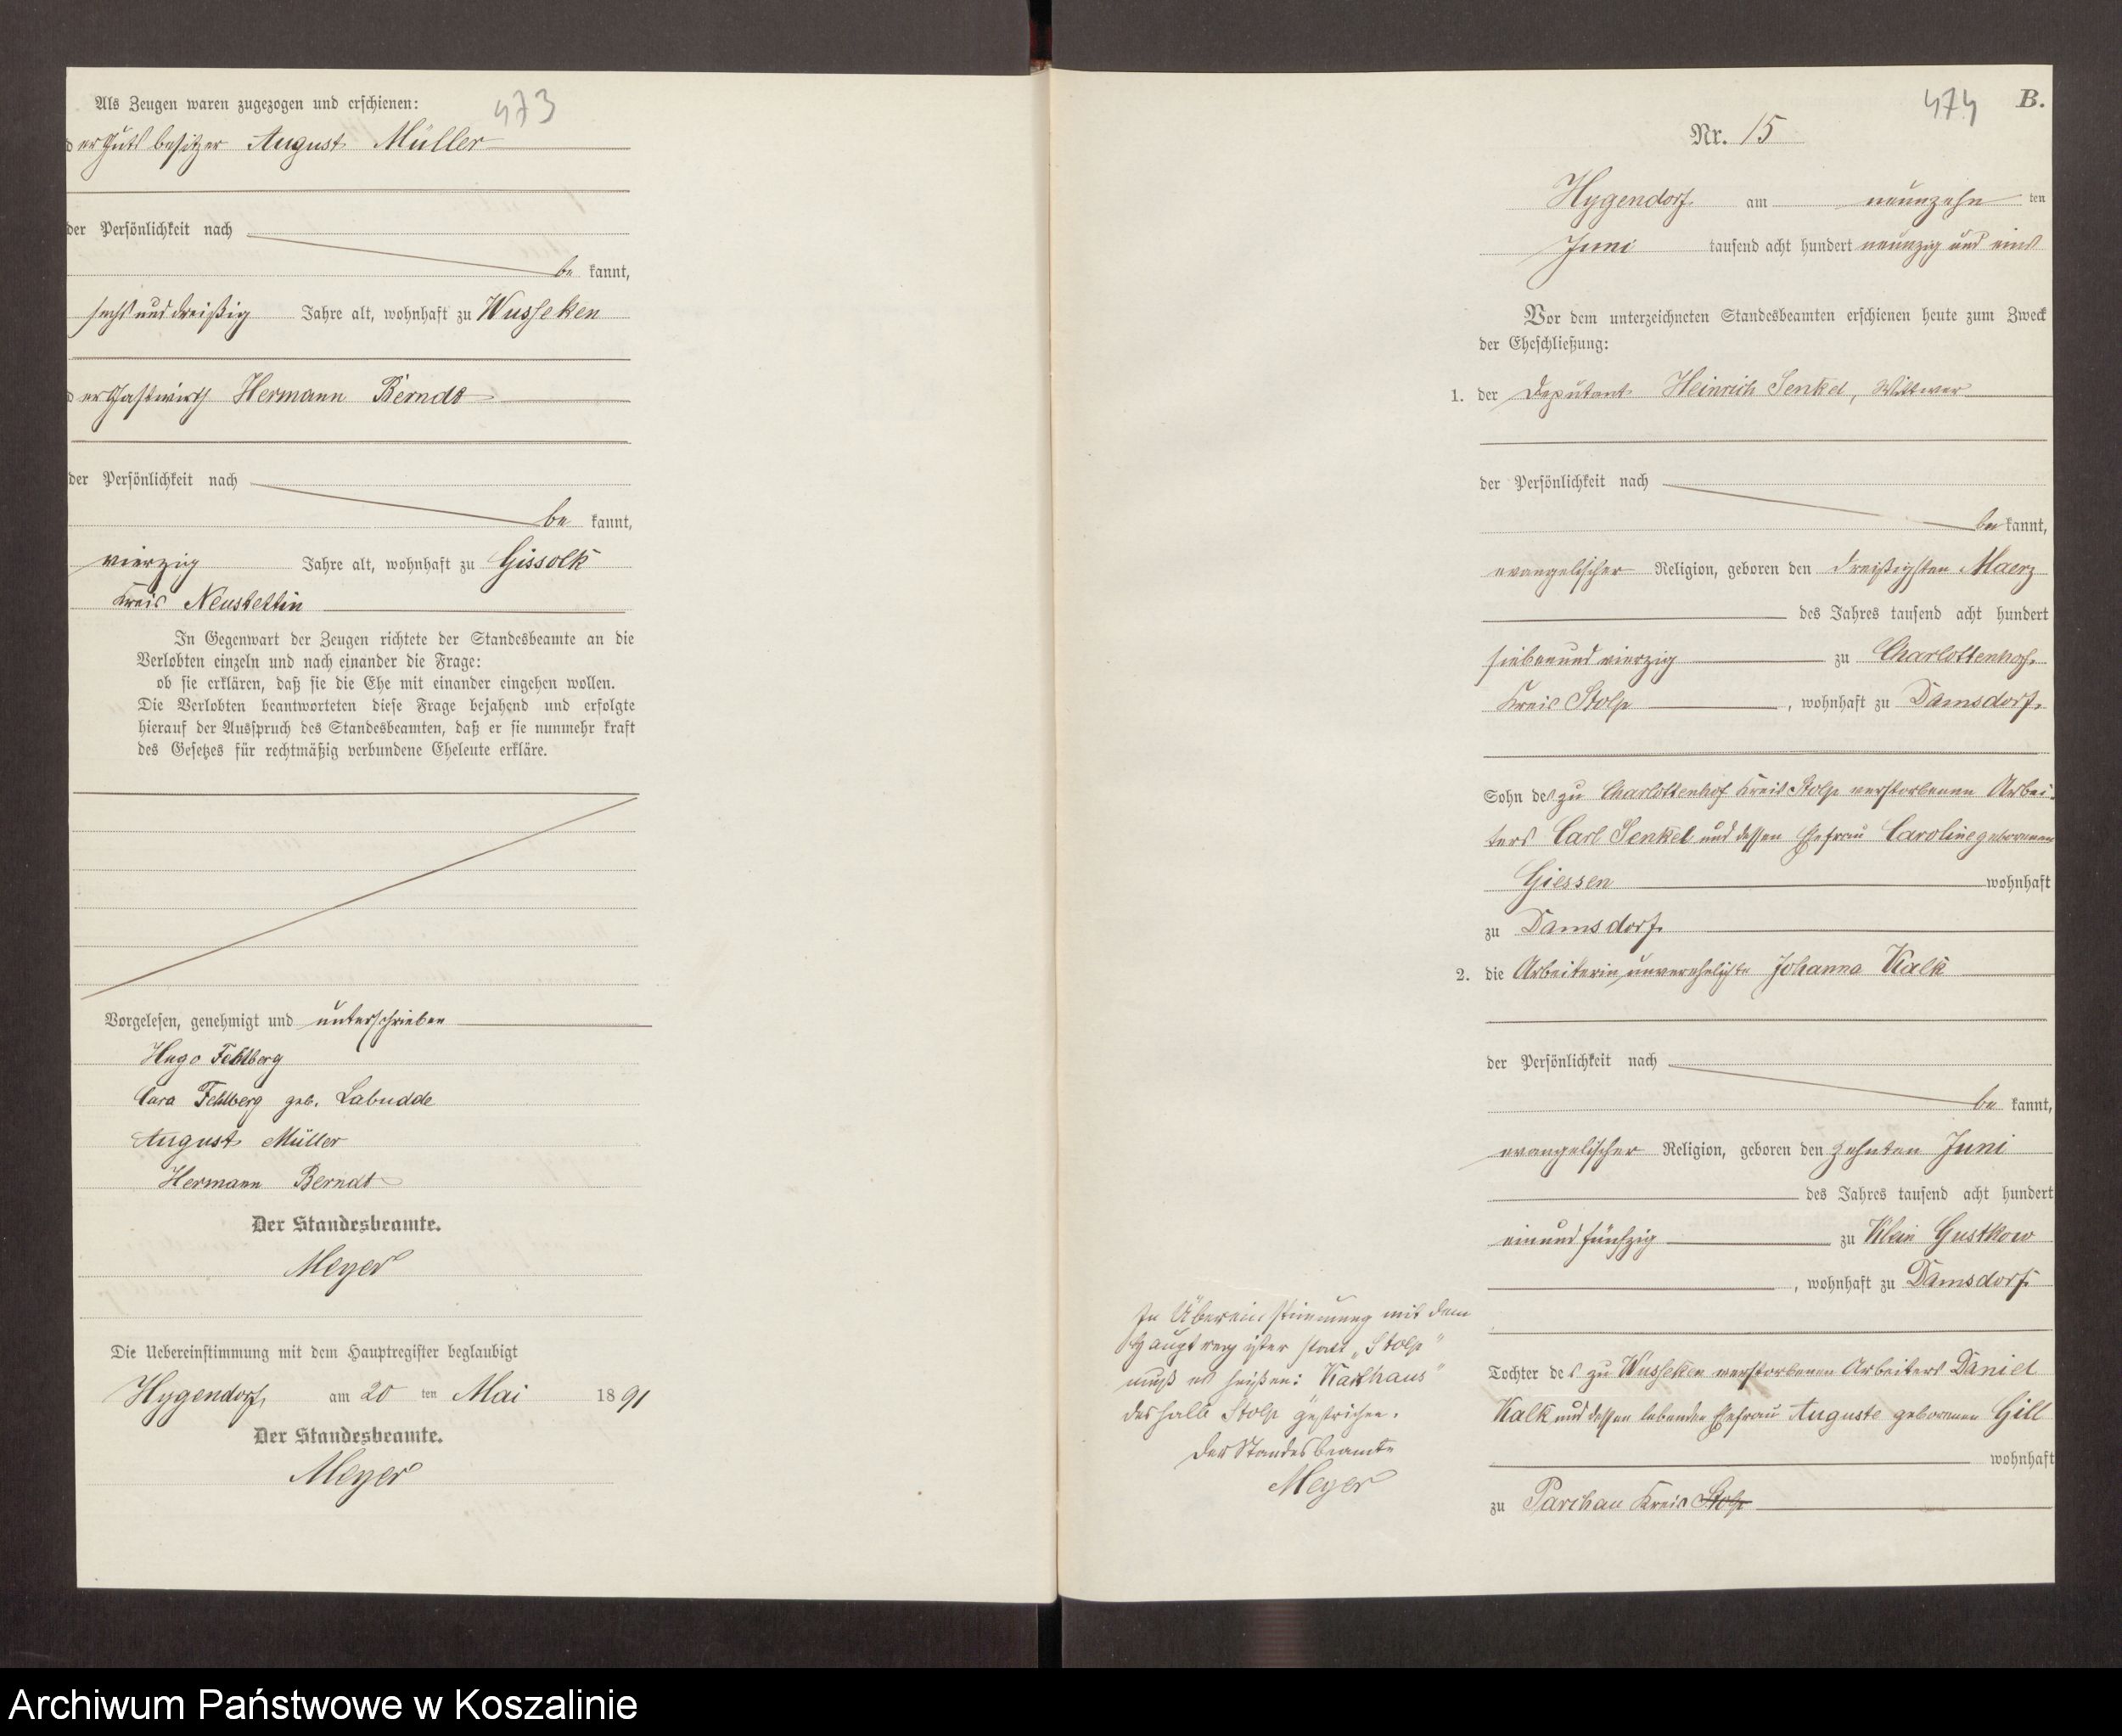 473
Als Zeugen waren zugezogen und erschienen:
der Gutsbesitzer August Müller
der Persönlichkeit nach
be kannt,
sechs und dreißig Jahre alt, wohnhaft zu Wusseken
der Gastwirth Hermann Berndt
der Persönlichkeit nach
be kannt,
vierzig Jahre alt, wohnhaft zu Gissolk
Kreis Neustettin
In Gegenwart der Zeugen richtete der Standesbeamte an die
Verlobten einzeln und nach einander die Frage:
ob sie erklären, daß sie die Ehe mit einander eingehen wollen.
Die Verlobten beantworteten diese Frage bejahend und erfolgte
hierauf der Ausspruch des Standesbeamten, daß er sie nunmehr kraft
des Gesetzes für rechtmäßig verbundene Eheleute erkläre.
Vorgelesen, genehmigt und unterschrieben
Hugo Fehlberg
Clara Fehlberg geb. Labudde
August Müller
Hermann Berndt
Der Standesbeamte.
Meyer
Die Uebereinstimmung mit dem Hauptregister beglaubigt
Hygendorf, am 20 ten Mai 1891
Der Standesbeamte.
Meyer
474 B.
Nr. 15
Hygendorf am neunzehn ten
Juni tausend acht hundert neunzig und eins
Vor dem unterzeichneten Standesbeamten erschienen heute zum Zweck
der Eheschließung:
1. der Deputant Heinrich Senkel, Wittwer
der Persönlichkeit nach
be kannt,
evangelischer Religion, geboren den dreißigsten Maerz
des Jahres tausend acht hundert
sieben und vierzig zu Charlottenhof,
Kreis Stolp, wohnhaft zu Damsdorf,
Sohn des zu Charlottenhof Kreis Stolp verstorbenen Arbei-
ters Carl Senkel und dessen Ehefrau Caroline geborenen
Giessen wohnhaft
zu Damsdorf.
2. die Arbeiterin, unverehelichte Johanna Kalk
der Persönlichkeit nach
be kannt,
evangelischer Religion, geboren den zehnten Juni
des Jahres tausend acht hundert
ein und fünfzig zu Klein Gustkow
, wohnhaft zu Damsdorf.
In Übereinstimmung mit dem
Hauptregister statt „Stolp"
muß es heißen: Karthaus"
deshalb Stolp gestrichen.
Der Standesbeamte
Meyer
Tochter des zu Wusseken verstorbenen Arbeiters Daniel
Kalk und dessen lebenden Ehefrau Auguste geborenen Gill
wohnhaft
zu Parchau Kreis Stolp
Archiwum Państwowe w Koszalinie